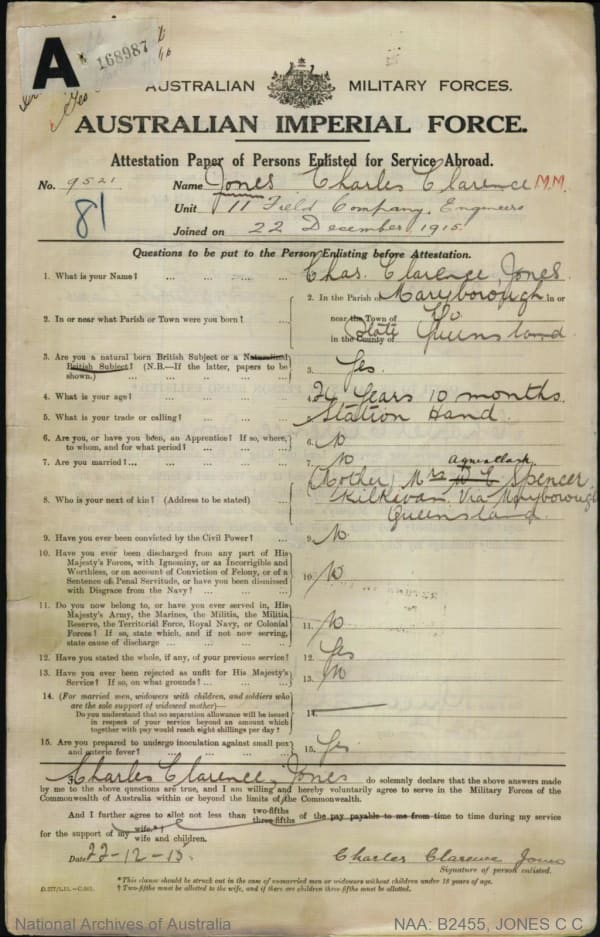 A
168987
AUSTRALIAN MILITARY FORCES.
AUSTRALIAN IMPERIAL FORCE.
Attestation Paper of Persons Enlisted for Service Abroad.
No. 9521 Name Jones Charles Clarence M.M.
81
Unit 11 Field Company, Engineers
Joined on 22 December 1915
Questions to be put to the Person Enlisting before Attestation.
1. What is your Name? ... ... ... ... Chas. Clarence Jones.
2. In or near what Parish or Town were you born? ... 2. In the Parish of Maryborough in or
near the Town of Do
in the County of State Queensland
3. Are you a natural born British Subject or a Naturalised
British Subject? (N.B.—If the latter, papers to be
shown.) ... ... ... ... 3. Yes.
4. What is your age? ... ... ... ... 4. 26 Years 10 months.
5. What is your trade or calling? ... ... ... 5. Station Hand
6. Are you, or have you been, an Apprentice? If so, where,
to whom, and for what period? ... ... ... 6. No
7. Are you married? ... ... ... ... 7. No
8. Who is your next of kin? (Address to be stated) 8. (Mother) Mrs Spencer
Kilkivan. Via Maryborough
Queensland.
9. Have you ever been convicted by the Civil Power? ... 9. No.
10. Have you ever been discharged from any part of His
Majesty's Forces, with Ignominy, or as Incorrigible and
Worthless, or on account of Conviction of Felony, or of a
Sentence of Penal Servitude, or have you been dismissed
with Disgrace from the Navy? ... ... ... 10. No
11. Do you now belong to, or have you ever served in, His
Majesty's Army, the Marines, the Militia, the Militia
Reserve, the Territorial Force, Royal Navy, or Colonial
Forces? If so, state which, and if not now serving,
state cause of discharge ... ... ... ... 11. No
12. Have you stated the whole, if any, of your previous service? 12. Yes
13. Have you ever been rejected as unfit for His Majesty's
Service? If so, on what grounds? ... ... ... 13. No
14. (For married men, widowers with children, and soldiers who
are the sole support of widowed mother)—
Do you understand that no separation allowance will be issued
in respect of your service beyond an amount which
together with pay would reach eight shillings per day? 14.
15. Are you prepared to undergo inoculation against small pox
and enteric fever? ... ... ... ... 15. Yes.
I, Charles Clarence Jones do solemnly declare that the above answers made
by me to the above questions are true, and I am willing and hereby voluntarily agree to serve in the Military Forces of the
Commonwealth of Australia within or beyond the limits of the Commonwealth.
And I further agree to allot not less than two-fifths three-fifths of the pay payable to me from time to time during my service
for the support of my wife.*† wife and children.
Date 22-12-15. Charles Clarence Jones
Signature of person enlisted.
* This clause should be struck out in the case of unmarried men or widowers without children under 18 years of age.
† Two-fifths must be allotted to the wife, and if there are children three-fifths must be allotted.
National Archives of Australia NAA: B2455, JONES C C